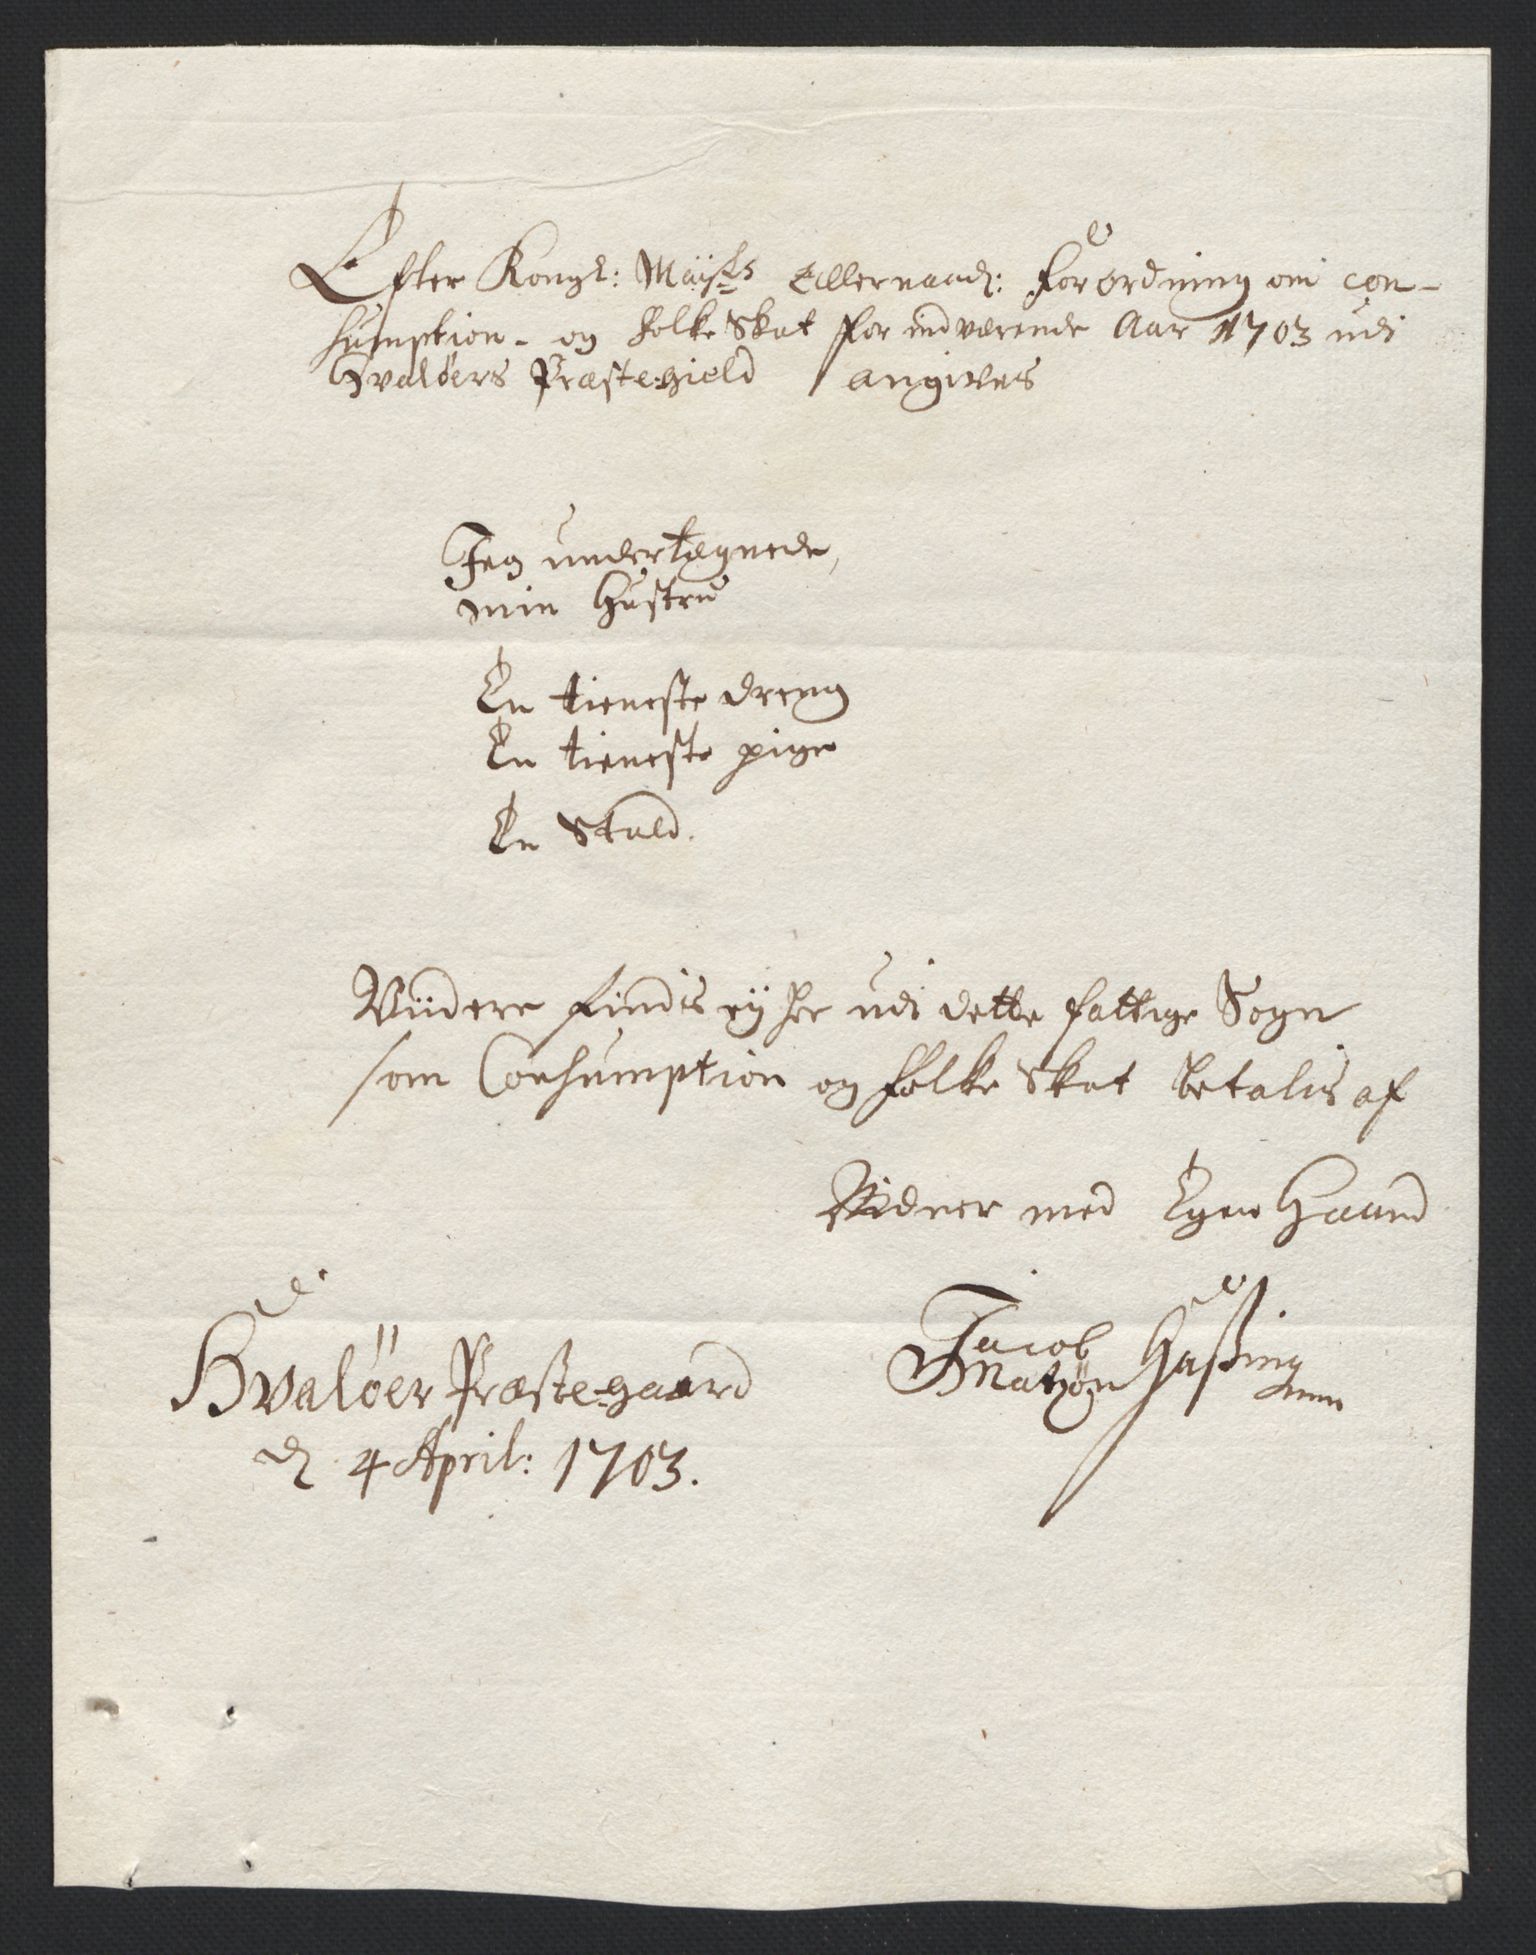 Efter Kongl: Maÿsts Allernaad: Forordning om con-
humption- og folke Skat for indværende Aar 1703 udi
Hvaløers Præstegield angives
Jeg undertegnede,
min Hustru
En tieneste dreng
En tieneste pige
En Stald.
Viidere findis eÿ her udi dette fattige Sogn
som Conhumption og folke Skat betalis af
Vidner med Egen Haand
Hvaløer Præste-gaard
d 4 April: 1703.
Jacob
Matzøn Haßing